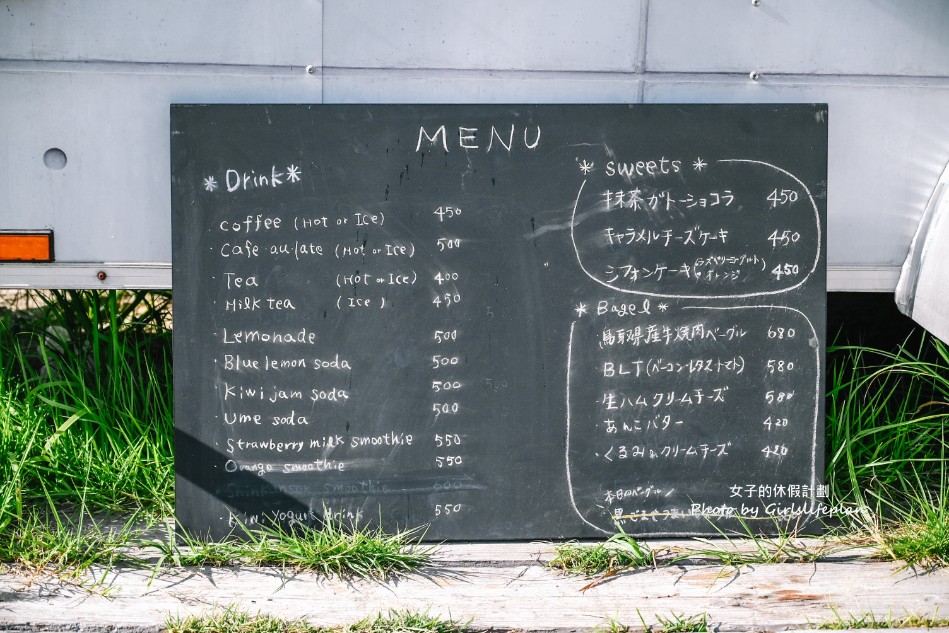 MENU
*Drink*
・coffee (Hot or Ice) 450
・Cafe au late (Hot or Ice) 500
・Tea (Hot or Ice) 400
・Milk tea (Ice) 450
・Lemonade 500
・Blue lemon soda 500
・Kiwi jam soda 500
・Ume soda 500
・Strawberry milk smoothie 550
・Orange smoothie 550
smoothie 600
・Kiwi Yogurt drink 550
* sweets *
抹茶ガトーショコラ 450
キャラメルチーズケーキ 450
シフォンケーキ 450
オレンジ
* Bagel *
・鳥取県産牛焼肉ベーグル 680
・BLT(ベーコン・レタス・トマト) 580
・生ハムクリームチーズ 580
・あんこバター 420
・くるみ&クリームチーズ 420
本日のベーグル
女子的休假計劃
Photo by Girlslifeplan